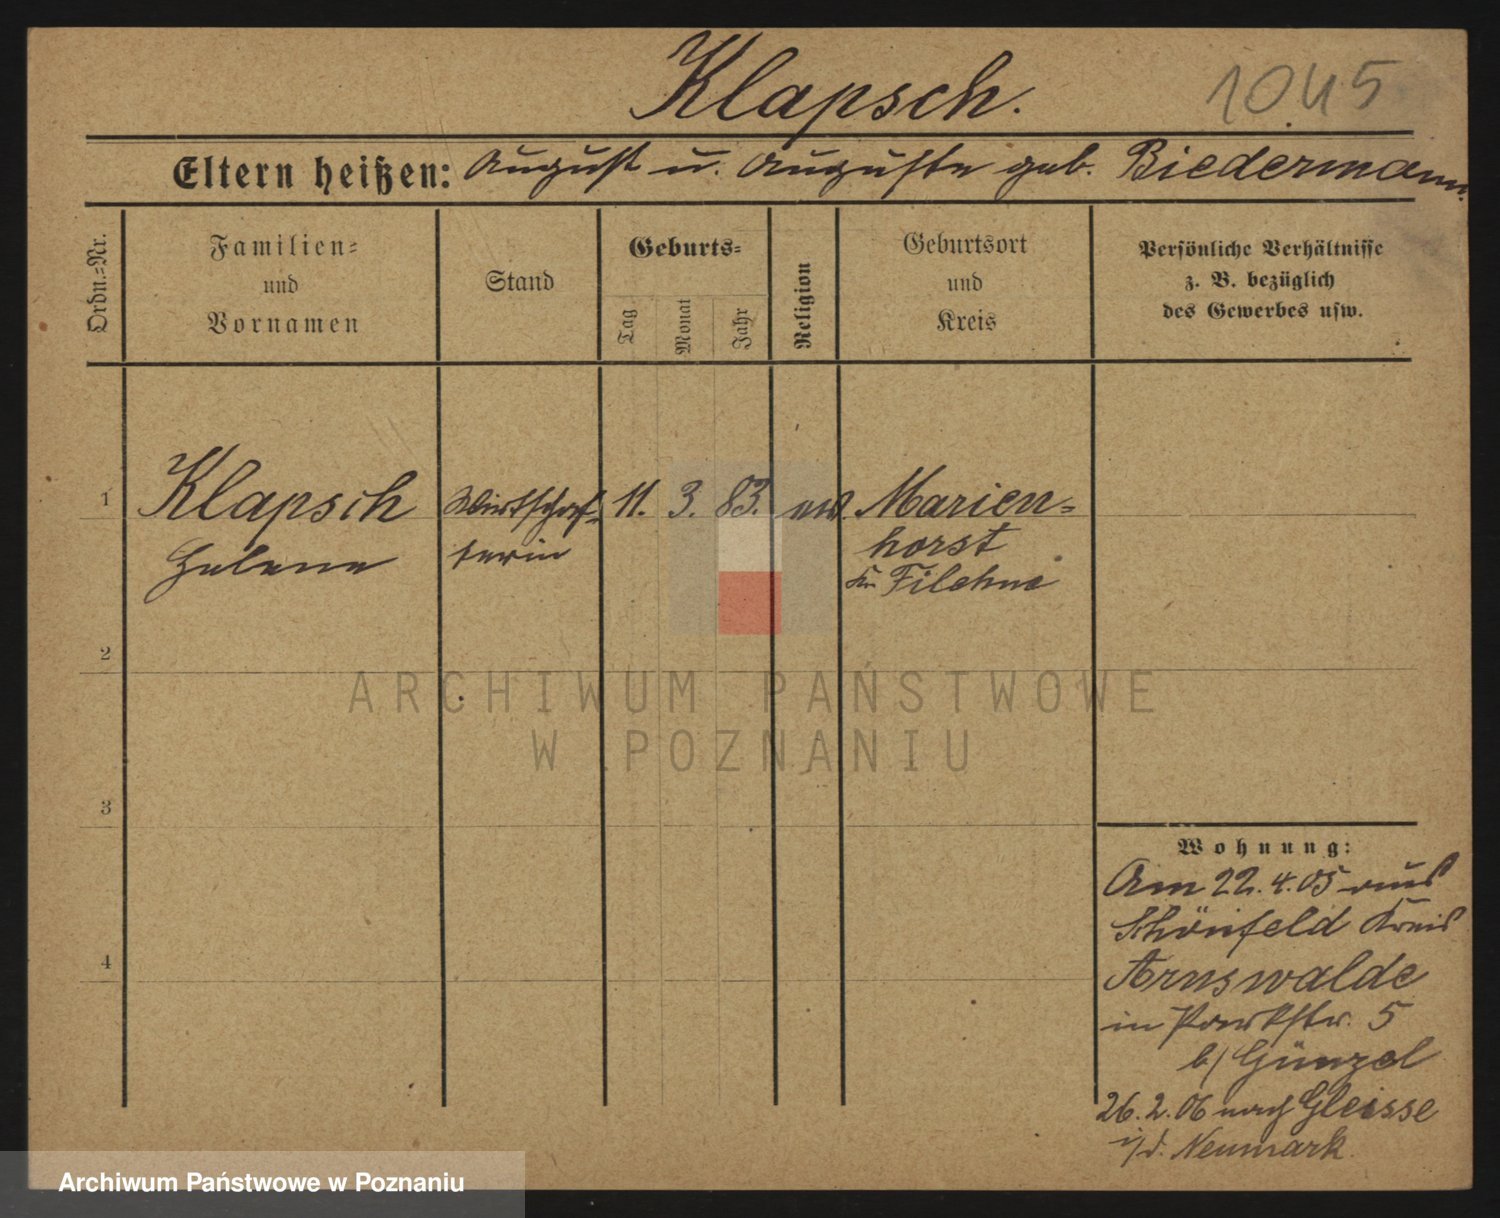 Klapsch.
1045
Eltern heißen: August u. Auguste geb. Biedermann.
Ordn.=Nr.
Familien=
und
Vornamen
Stand
Geburts=
Tag
Monat
Jahr
Religion
Geburtsort
und
Kreis
Persönliche Verhältnisse
z. B. bezüglich
des Gewerbes usw.
1 Klapsch Wirtschaf- 11. 3. 83. ev. Marien=
Helene terin horst
Kr. Filehne
2
3
4
Wohnung:
Am 22.4.05 aus
Schönfeld Kreis
Arnswalde
in Parkstr. 5
b/ Günzel
26.2.06 nach Gleisse
i/d. Neumark.
ARCHIWUM PAŃSTWOWE
W POZNANIU
Archiwum Państwowe w Poznaniu